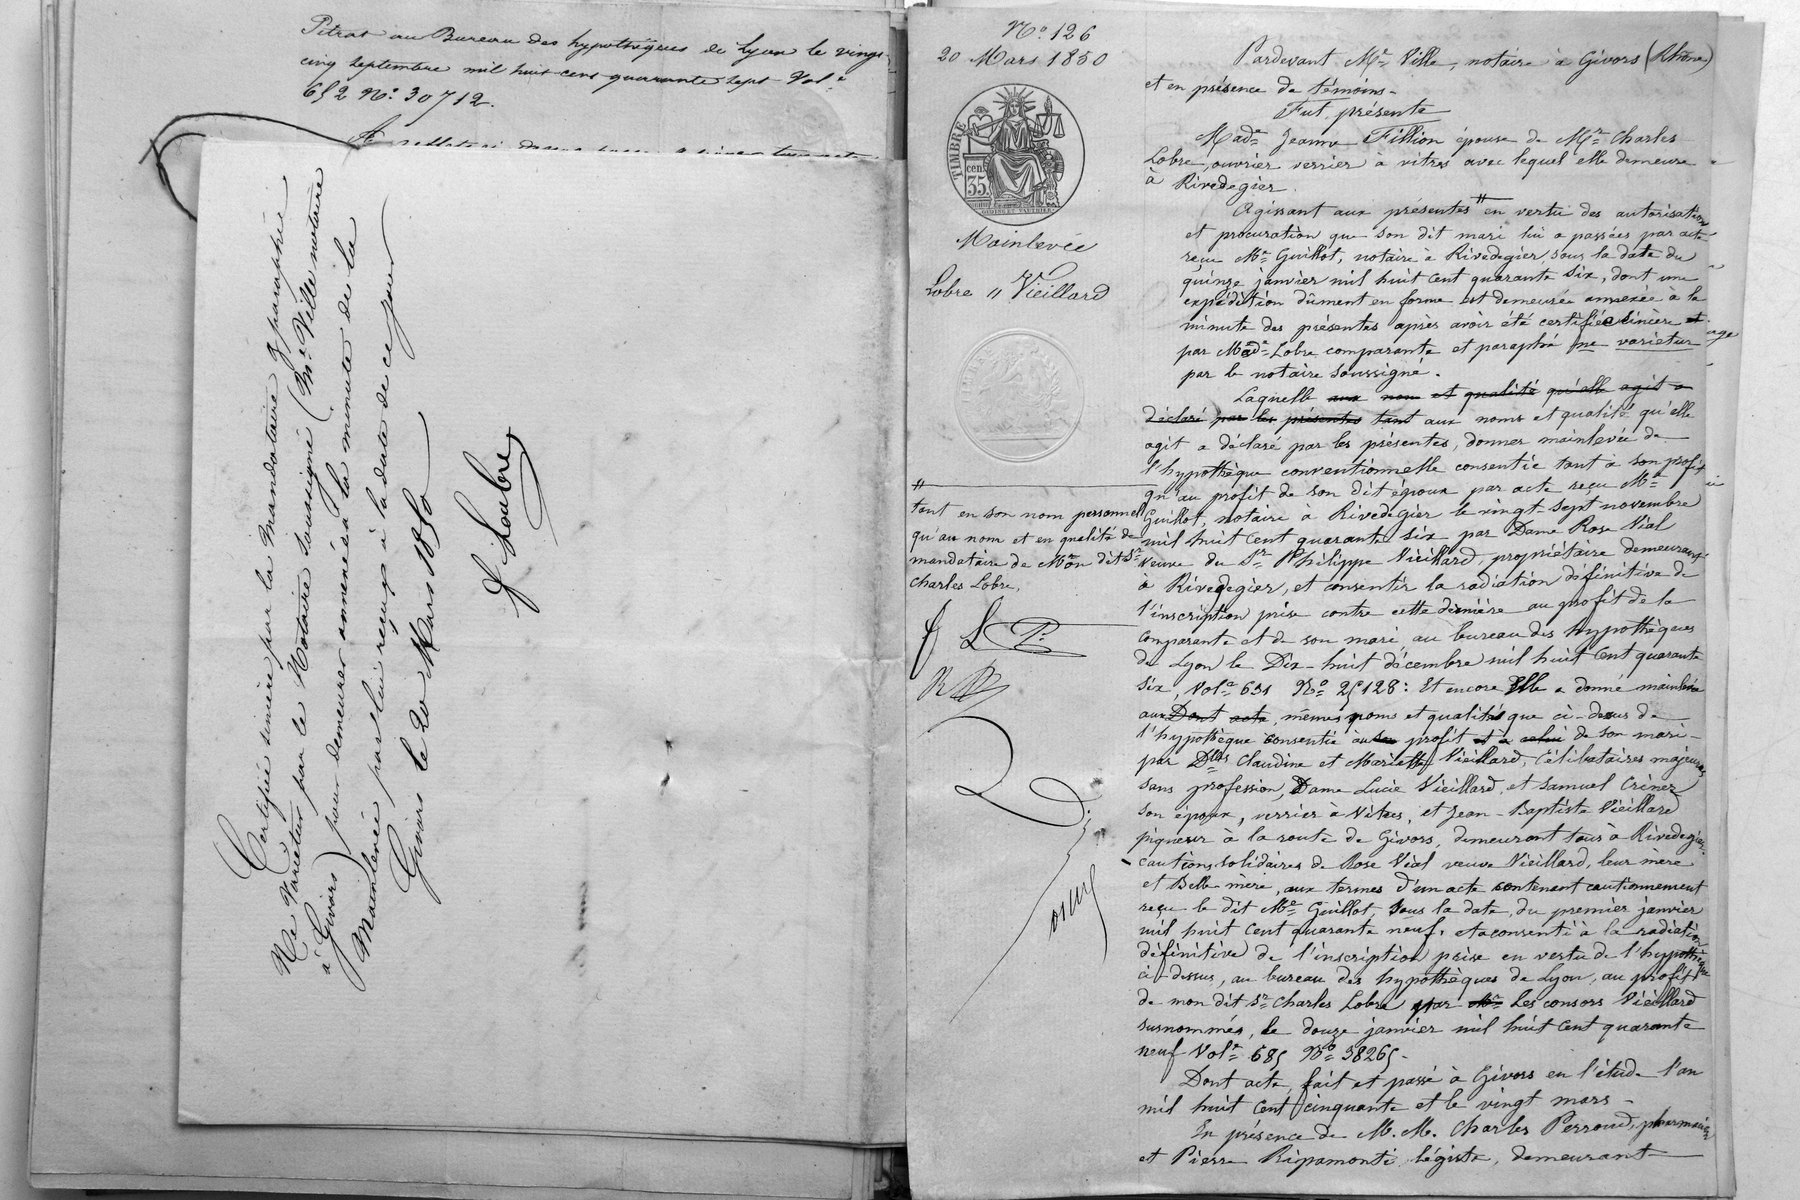 Pitrat au Bureau des hypothèques de Lyon le vingt
cinq septembre mil huit cent quarante sept Vol.e
652 N.o 30712.
Certifié sincère par la Mandataire & paraphié
Ne Varietur par le Notaire soussigné (Me. Ville notaire
à Givors) pour demeurer annexé à la minute de la
Mainlevée par elle reçue à la date de ce jour
Givors le 20 Mars 1850
f Loubre
N.o 126
20 Mars 1850
TIMBRE
cen.
35.
Mainlevée
Lobre " Vieillard
"
tant en son nom personnel
qu'au nom et en qualité de
mandataire de Mon dit Sr.
Charles Lobre.
Pardevant Me. Ville, notaire à Givors (Rhône)
et en présence de témoins -
Fut présente
Made. Jeanne Fillion épouse de Mr. Charles
Lobre, ouvrier verrier à vitres avec lequel elle demeure
à Rivedegier.
Agissant aux présentes " en vertu des autorisation
et procuration que son dit mari lui a passées par acte
reçu Me. Guillot, notaire à Rivedegier, sous la date du
quinze janvier mil huit cent quarante six, dont une
expédition dûment en forme est demeurée annexée à la
minute des présentes après avoir été certifiée sincère et
par Made. Lobre comparante et paraphé ne varietur
par le notaire soussigné.
Laquelle aux nom et qualité qu'elle agit a
déclaré par les présentes tant aux noms et qualité qu'elle
agit a déclaré par les présentes, donner mainlevée de
l'hypothèque conventionnelle consentie tant à son profit
qu'au profit de son dit époux par acte reçu Me.
Guillot, notaire à Rivedegier le vingt sept novembre
mil huit cent quarante six par Dame Rose Vial
veuve du Sr. Philippe Vieillard, propriétaire demeurant
à Rivedegier, et consentir la radiation définitive de
l'inscription prise contre cette dernière au profit de la
comparante et de son mari, au bureau des hypothèques
de Lyon le Dix-huit décembre mil huit cent quarante
six, Vol.e 631 N.o 25128: Et encore Elle a donné mainlevée
aux Dont acte, mêmes noms et qualités que ci-dessus de
l'hypothèque consentie au profit et à celui de son mari -
par Dlles Claudine et Mariette Vieillard, Célibataires majeures
sans profession, Dame Lucie Vieillard, et Samuel Criner
son époux, verrier à Vitres, et Jean-Baptiste Vieillard
piqueur à la route de Givors, demeurant tous à Rivedegier.
cautions solidaires de Rose Vial veuve Vieillard, leur mère
et Belle-mère, aux termes d'un acte contenant cautionnement
reçu le dit Me. Guillot, sous la date, du premier janvier
mil huit cent quarante neuf, et a consenti à la radiation
définitive de l'inscription prise en vertu de l'hypothèque
ci-dessus, au bureau des hypothèques de Lyon, au profit
de mon dit Sr. Charles Lobre par les consors Vieillard
susnommés, le douze janvier mil huit cent quarante
neuf Vol.e 685 N.o 38265 -
Dont acte, fait et passé à Givors en l'étude l'an
mil huit cent cinquante et le vingt mars -
En présence de M. M. Charles Perroud, pharmacien
et Pierre Ripamonti, légiste, demeurant